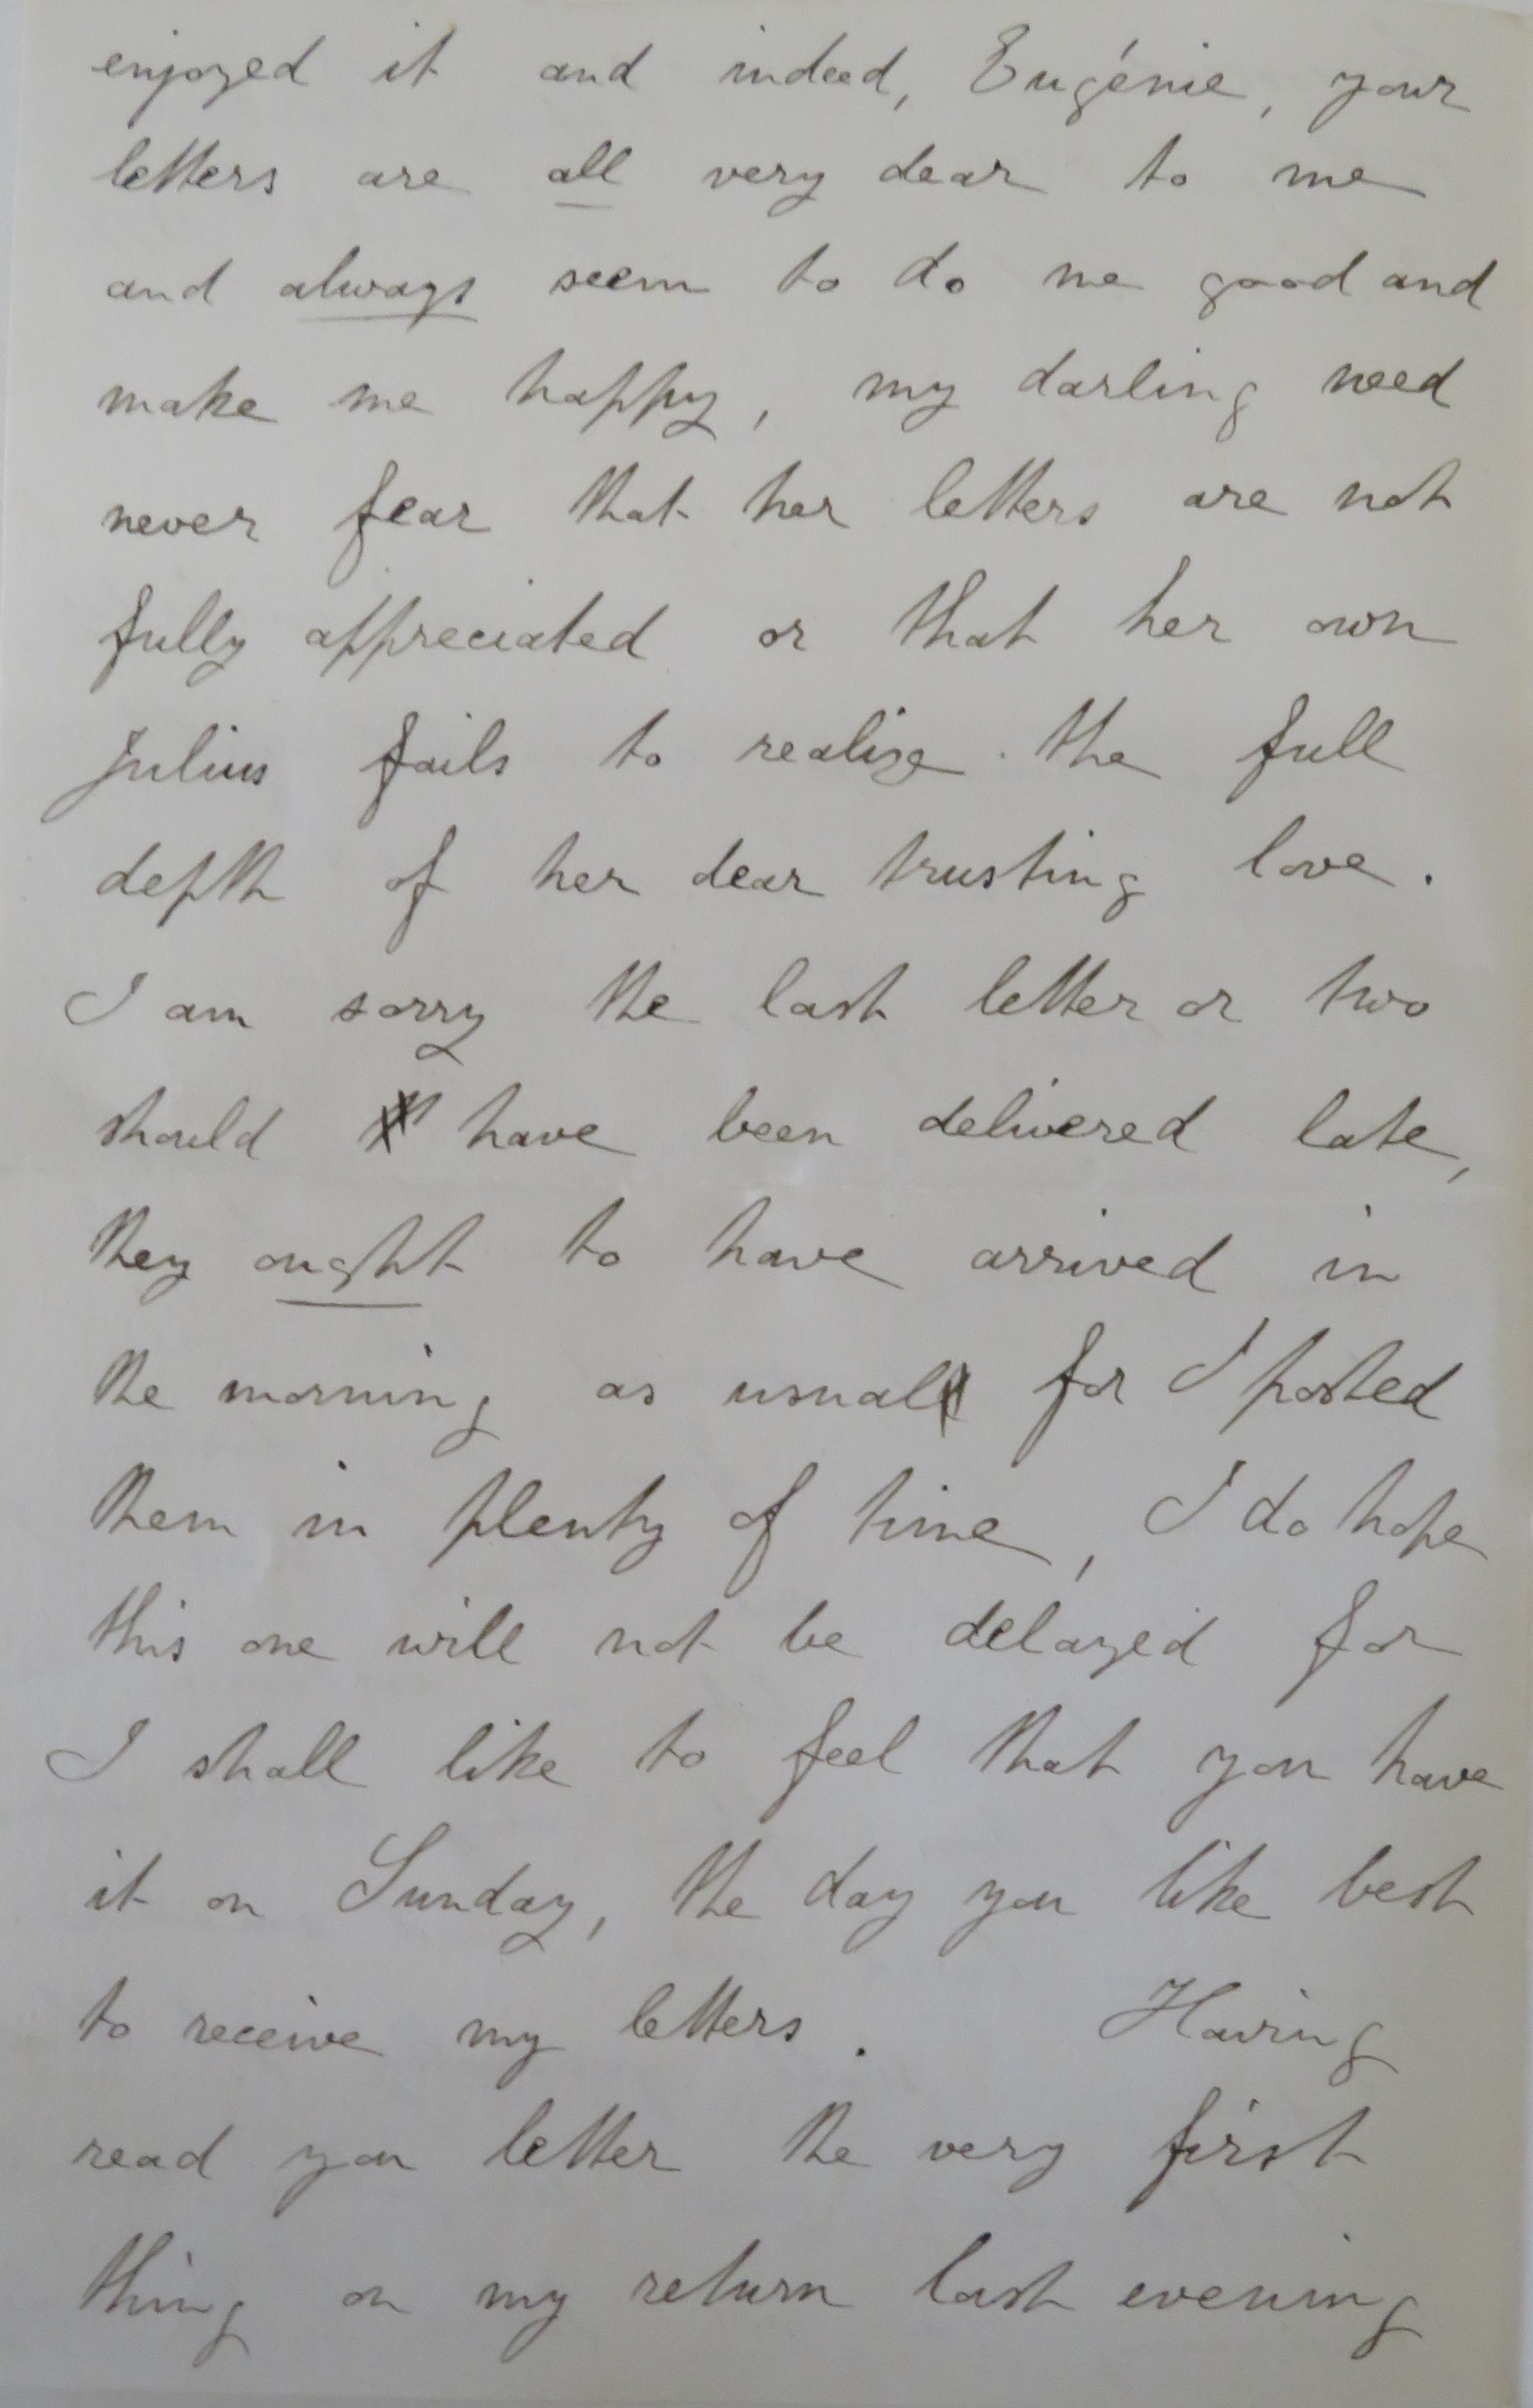 enjoyed it and indeed, Eugénie, your
letters are all very dear to me
and always seem to do me good and
make me happy, my darling need
never fear that her letters are not
fully appreciated or that her own
Julius fails to realize the full
depth of her dear trusting love.
I am sorry the last letter or two
should have been delivered late,
they ought to have arrived in
the morning as usual for I posted
them in plenty of time, I do hope
this one will not be delayed for
I shall like to feel that you have
it on Sunday, the day you like best
to receive my letters. Having
read you letter the very first
thing on my return last evening